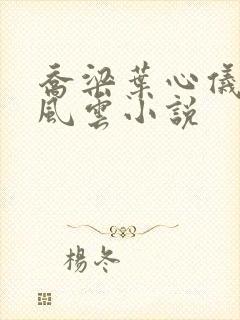 喬梁葉心儀
風雲小説
楊冬